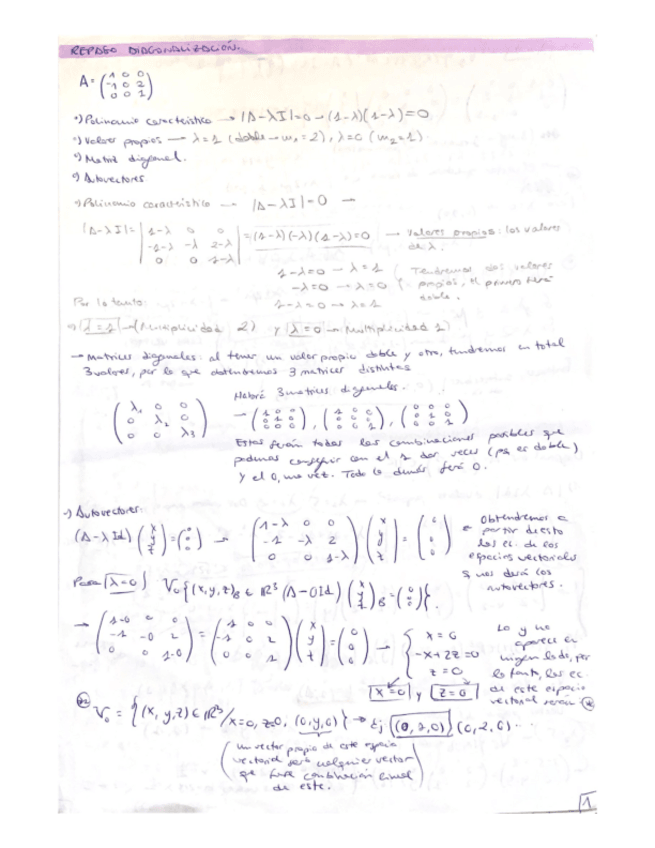 REPASO DIAGONALIZACIÓN.
A = (1 0 0 / -1 0 2 / 0 0 1)
•) Polinomio característico → |A-λI|=0 → (1-λ)(1-λ)=0
•) Valores propios → λ=1 (doble → m₁=2), λ=0 (m₂=1)
•) Matriz diagonal.
•) Autovectores
•) Polinomio característico → |A-λI|=0 →
|A-λI| = | 1-λ 0 0 / -1-λ -λ 2-λ / 0 0 1-λ | = (1-λ)(-λ)(1-λ)=0 → Valores propios: los valores de λ.
1-λ=0 → λ=1
-λ=0 → λ=0
1-λ=0 → λ=1
( Tendremos dos valores propios, el primero será doble.
Por lo tanto:
•) λ=1 → (Multiplicidad 2) y λ=0 → Multiplicidad 1)
→ Matrices diagonales: al tener un valor propio doble y otro, tendremos en total
3 valores, por lo que obtendremos 3 matrices distintas
Habrá 3 matrices diagonales.
(λ₁ 0 0 / 0 λ₂ 0 / 0 0 λ₃) → (1 0 0 / 0 1 0 / 0 0 0), (1 0 0 / 0 0 0 / 0 0 1), (0 0 0 / 0 1 0 / 0 0 1)
Estas serán todas las combinaciones posibles que
podamos conseguir con el 1 dos veces (pq es doble)
y el 0, una vez. Todo lo demás será 0.
•) Autovectores:
(A-λId) (x / y / z) = (0 / 0 / 0) → (1-λ 0 0 / -1 -λ 2 / 0 0 1-λ) (x / y / z) = (0 / 0 / 0)
Obtendremos a partir de esto las ec. de los espacios vectoriales q nos dará los autovectores.
Para λ=0 V₀{(x,y,z)B ∈ ℝ³ (A-0Id) (x / y / z)B = (0 / 0 / 0)}.
→ (1-0 0 0 / -1 -0 2 / 0 0 1-0) = (1 0 0 / -1 0 2 / 0 0 1) (x / y / z) = (0 / 0 / 0) → { x=0 / -x+2z=0 / z=0
x=0 y z=0
La y no aparece en ningún lado, por lo tanto, las ec. de este espacio vectorial serán
V₀ = {(x,y,z) ∈ ℝ³ / x=0, z=0, (0,y,0)} → Ej (0,1,0) (0,2,0)...
( un vector propio de este espacio
vectorial será cualquier vector
que fuese combinación lineal
de este. )
1